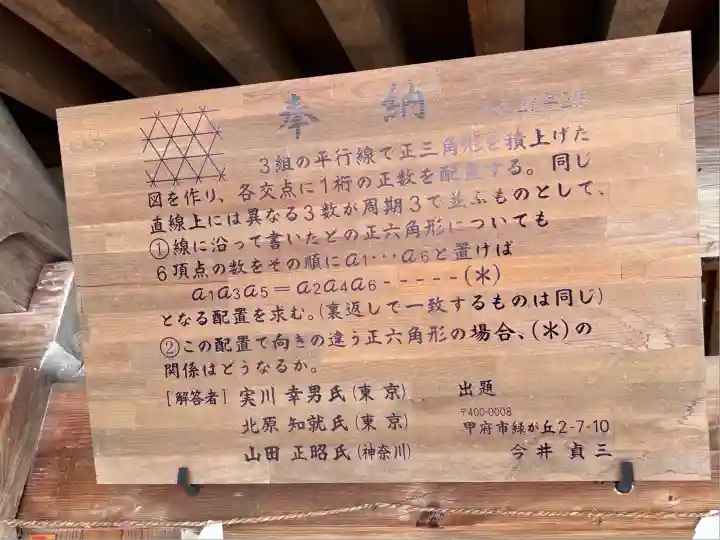 奉納
3組の平行線で正三角形を積上げた
図を作り、各交点に1桁の正数を配置する。同じ
直線上には異なる3数が周期3で並ぶものとして、
①線に沿って書いたどの正六角形についても
6頂点の数をその順にa1…a6と置けば
a1a3a5=a2a4a6-----(*)
となる配置を求む。(裏返して一致するものは同じ)
②この配置で向きの違う正六角形の場合、(*)の
関係はどうなるか。
[解答者] 実川 幸男氏(東京)
北原 知就氏(東京)
山田 正昭氏(神奈川)
出題
〒400-0008
甲府市緑が丘2-7-10
今井 貞三